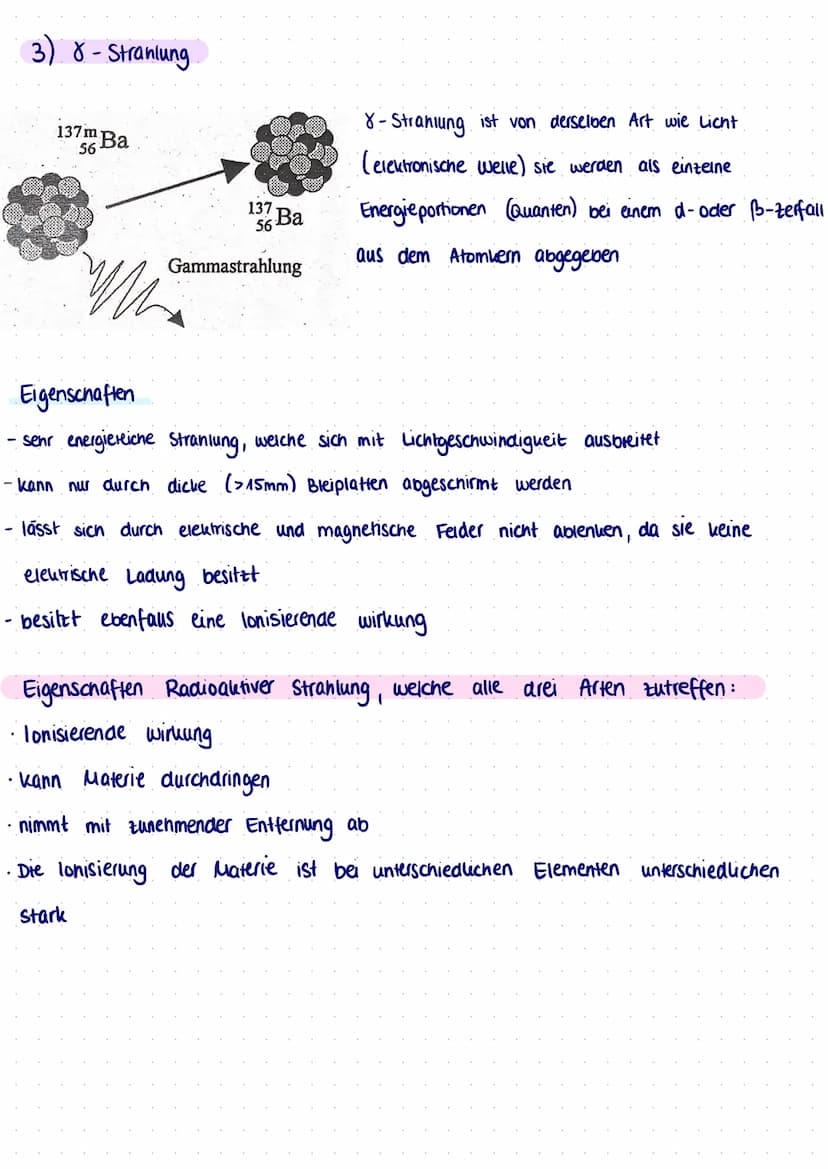 3) γ - Strahlung
137m
56 Ba
137
56 Ba
Gammastrahlung
γ - Strahlung ist von derselben Art wie Licht
(elektronische Welle) sie werden als einzelne
Energieportionen (Quanten) bei einem α- oder β-Zerfall
aus dem Atomkern abgegeben
Eigenschaften
- sehr energiereiche Strahlung, welche sich mit Lichtgeschwindigkeit ausbreitet
- kann nur durch dicke (>15mm) Bleiplatten abgeschirmt werden
- lässt sich durch elektrische und magnetische Felder nicht ablenken, da sie keine
elektrische Ladung besitzt
- besitzt ebenfalls eine Ionisierende wirkung
Eigenschaften Radioaktiver Strahlung, welche alle drei Arten zutreffen:
· Ionisierende wirkung
· kann Materie durchdringen
· nimmt mit zunehmender Entfernung ab
· Die Ionisierung der Materie ist bei unterschiedlichen Elementen unterschiedlichen
stark